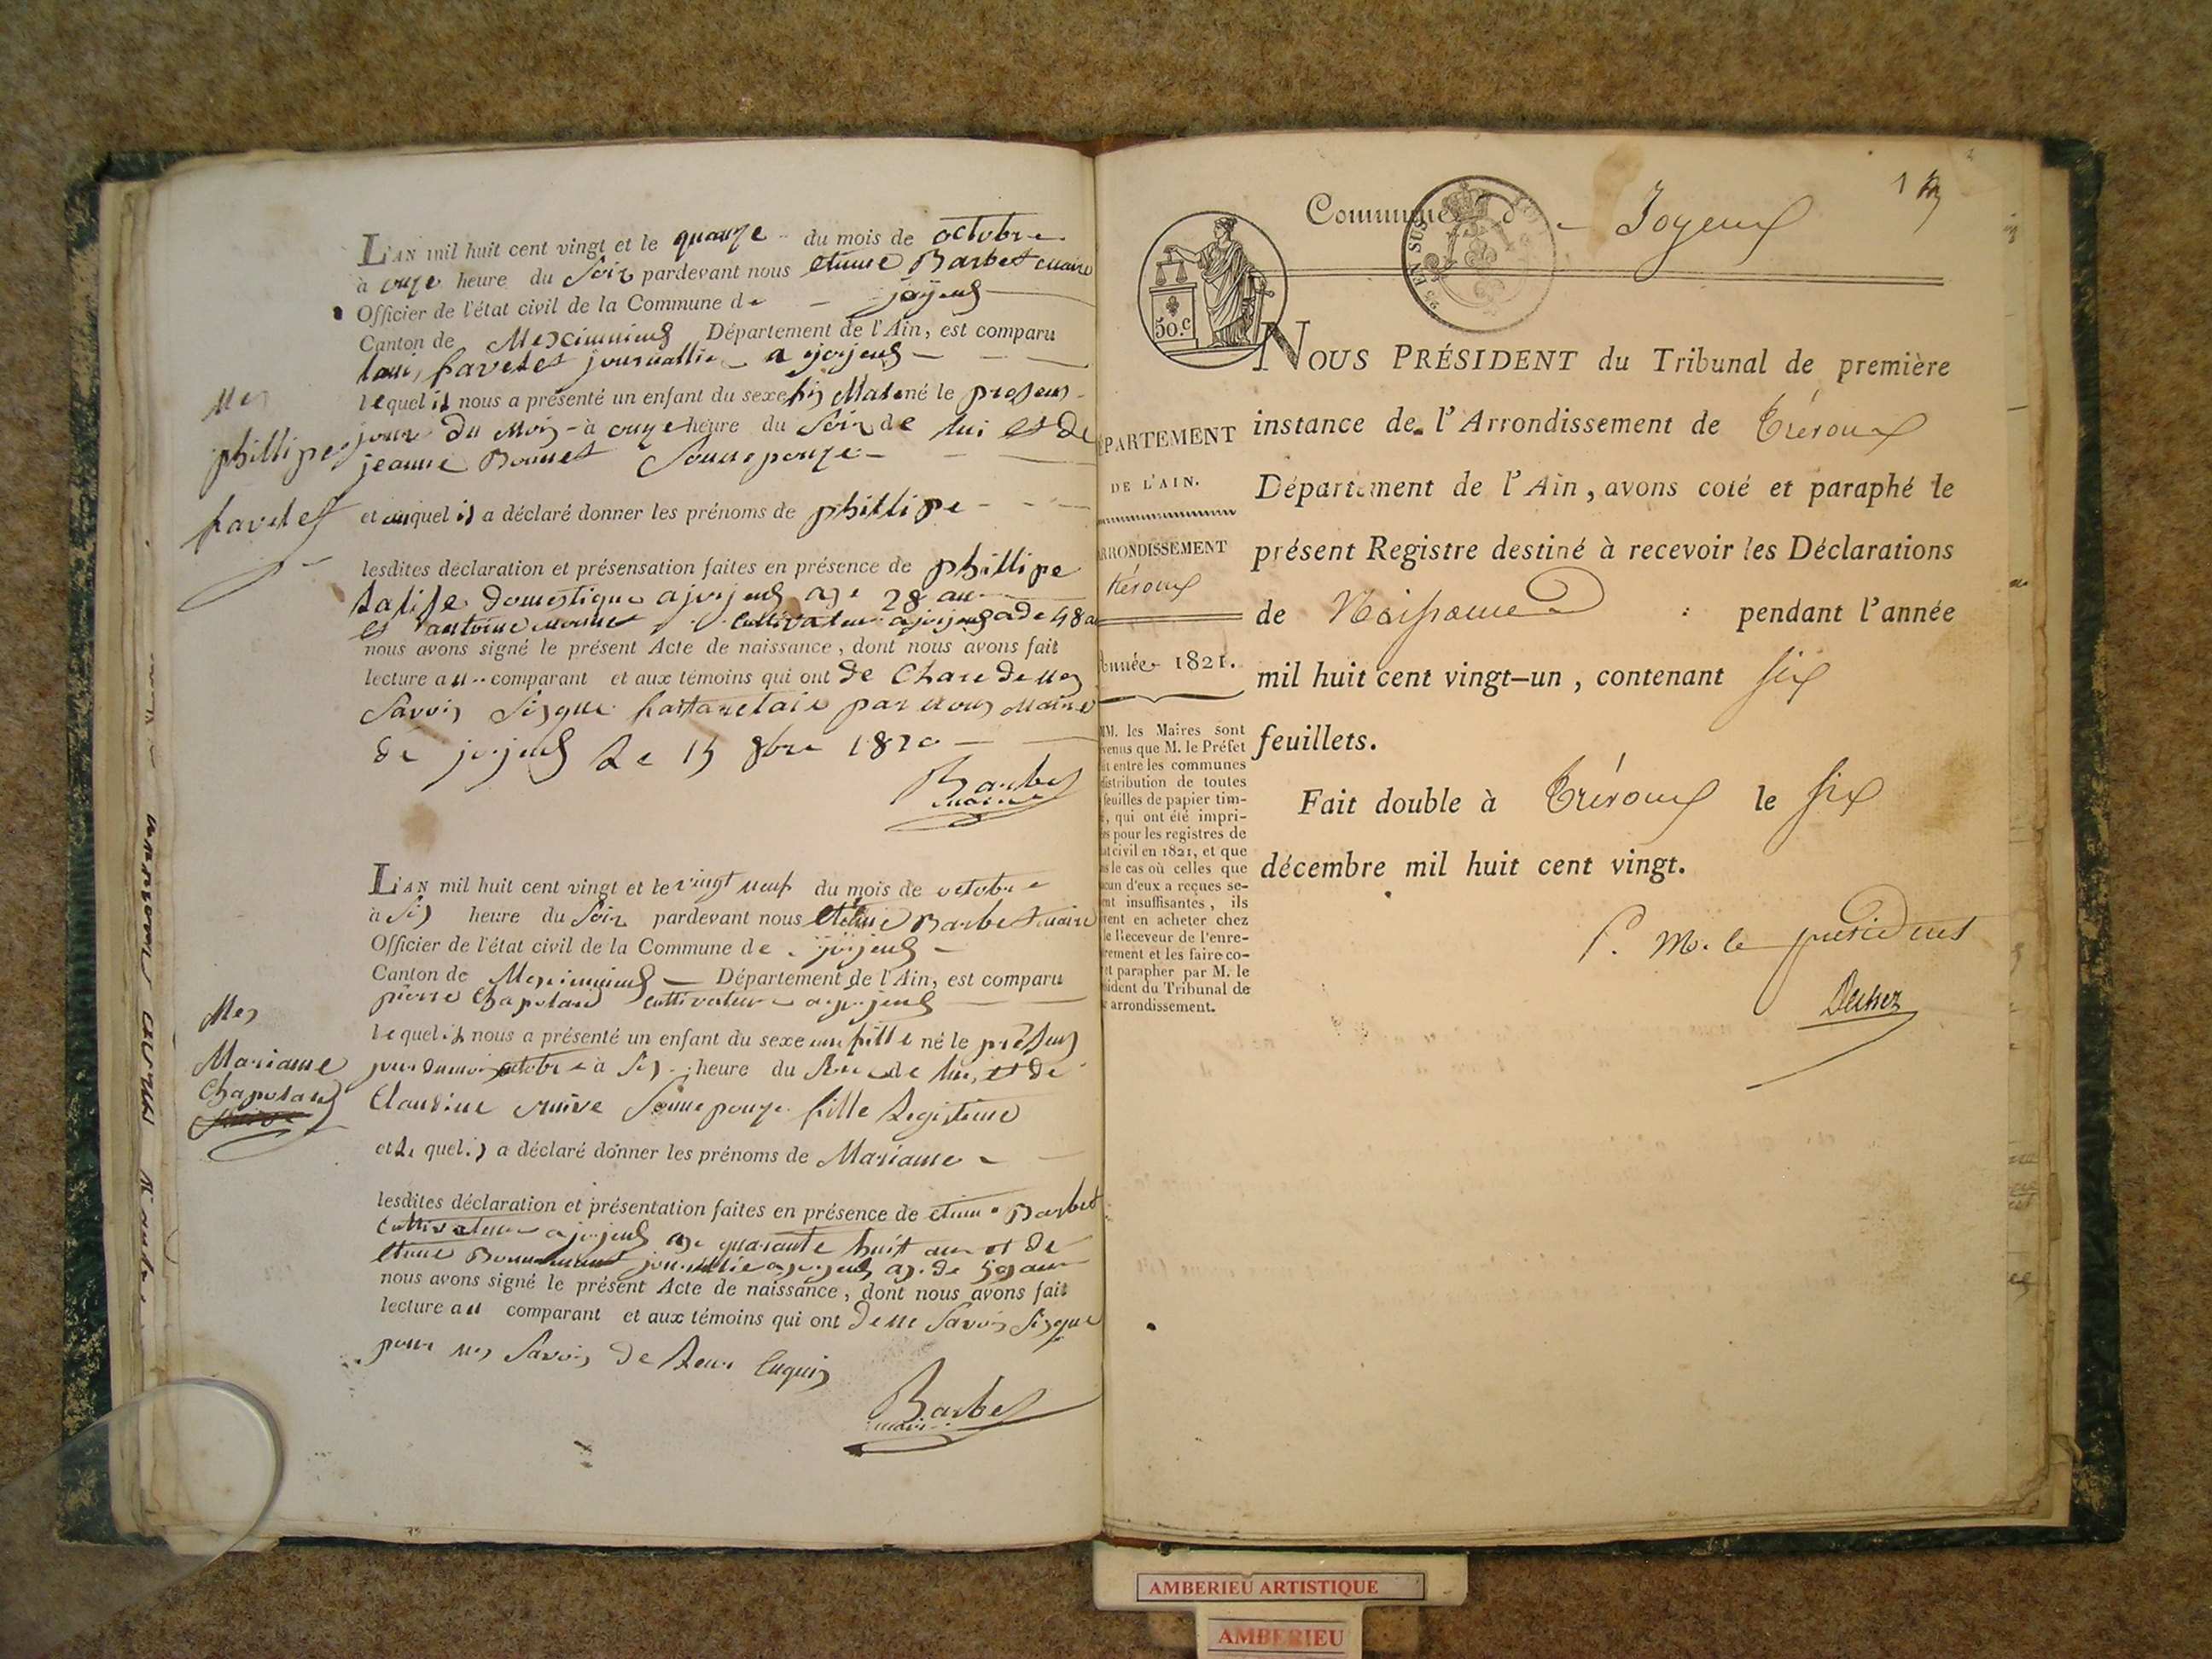 L'AN mil huit cent vingt et le quanze du mois de octobre
à onze heure du Soir pardevant nous etiene Barbet maire
Officier de l'état civil de la Commune de joyeux
Canton de Meximieux Département de l'Ain, est comparu
favetet journallie a joyeux
lequel il nous a présenté un enfant du sexe Male né le presens
jour du Mois à onze heure du Soir de lui et de
jeanne Bonnet Son epouze
et auquel il a déclaré donner les prénoms de phillipe
lesdites déclaration et présensation faites en présence de phillipe
domestique a joyeux age 28 an
et antoine cultivateur a joyeux a de 48 a
nous avons signé le présent Acte de naissance, dont nous avons fait
lecture au comparant et aux témoins qui ont de
Savoir par nous Maire
de joyeux Le 15 8bre 1820
Barbet
maire
phillipe
favetet
L'AN mil huit cent vingt et le vingt neuf du mois de octobre
à Six heure du Soir pardevant nous etiene Barbet maire
Officier de l'état civil de la Commune de joyeux
Canton de Meximieux Département de l'Ain, est comparu
pierre Chapolard cultivateur a joyeux
lequel il nous a présenté un enfant du sexe une fille né le presens
jour du mois octobre à Six heure du Soir de lui et de
Claudine Son epouze fille Legisteme
et Le quel il a déclaré donner les prénoms de Marianne
lesdites déclaration et présentation faites en présence de etiene Barbet
Cultivateur a joyeux age quarante huit an et de
etiene journallie a joyeux age de an
nous avons signé le présent Acte de naissance, dont nous avons fait
lecture au comparant et aux témoins qui ont Savoir
pour Savoir de Leur Enquis
Barbet
maire
Marianne
Chapolard
1
Commune d Joyeux
25 EN SUS
50.c
NOUS PRÉSIDENT du Tribunal de première
instance de l'Arrondissement de Trévoux
Département de l'Ain, avons coté et paraphé le
présent Registre destiné à recevoir les Déclarations
de Naissance pendant l'année
mil huit cent vingt-un, contenant six
feuillets.
Fait double à Trévoux le six
décembre mil huit cent vingt.
P. M. le président
PARTEMENT
DE L'AIN.
RRONDISSEMENT
Trévoux
Année 1821.
MM. les Maires sont
venus que M. le Préfet
it entre les communes
distribution de toutes
feuilles de papier tim-
é, qui ont été impri-
es pour les registres de
at civil en 1821, et que
s le cas où celles que
acun d'eux a reçues se-
ent insuffisantes, ils
vent en acheter chez
le Receveur de l'enre-
rement et les faire co-
et parapher par M. le
sident du Tribunal de
r arrondissement.
AMBERIEU ARTISTIQUE
AMBERIEU